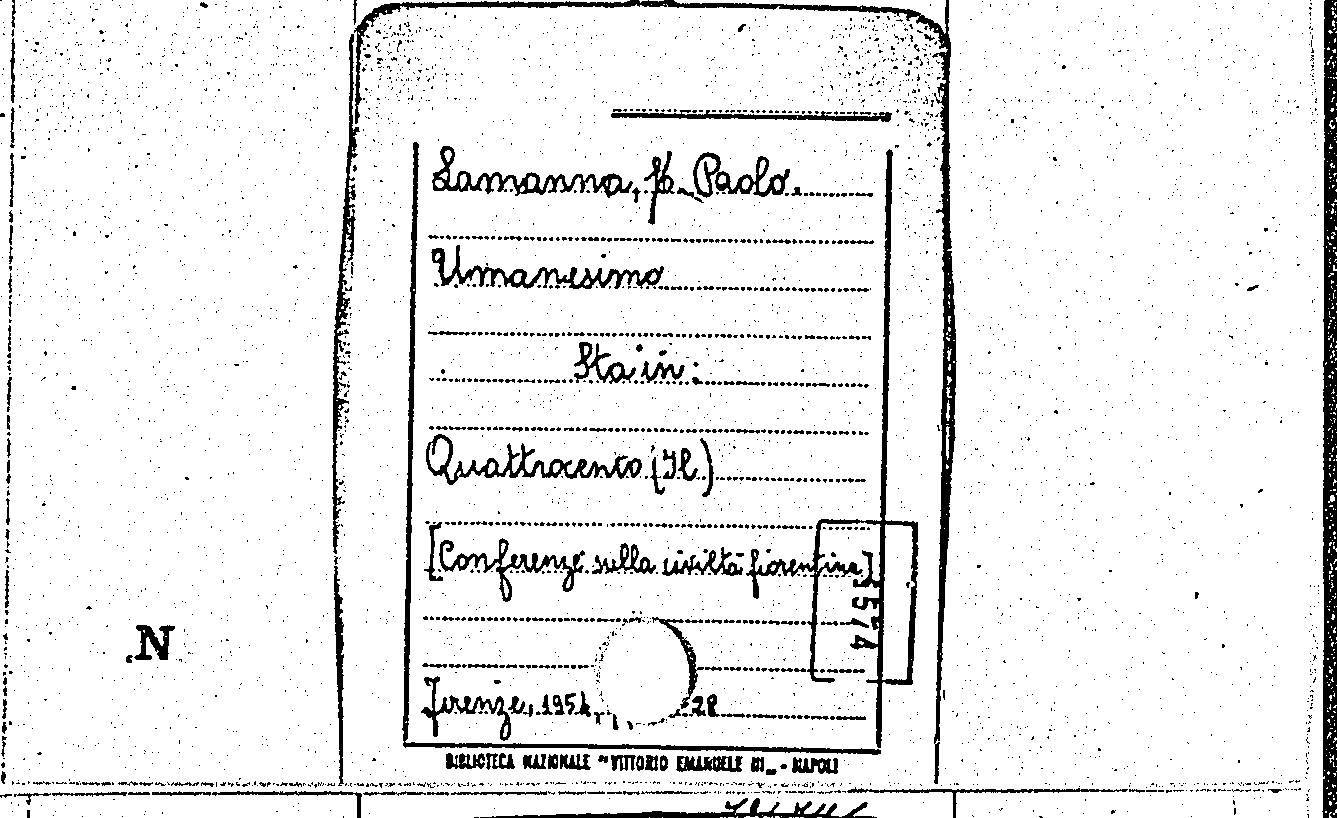 Lamanna, p. Paolo.
Umanesimo
Sta in:
Quattrocento (Il)
[Conferenze sulla civiltà fiorentina]
Firenze, 1954, 28
N
BIBLIOTECA NAZIONALE "VITTORIO EMANUELE III" - NAPOLI